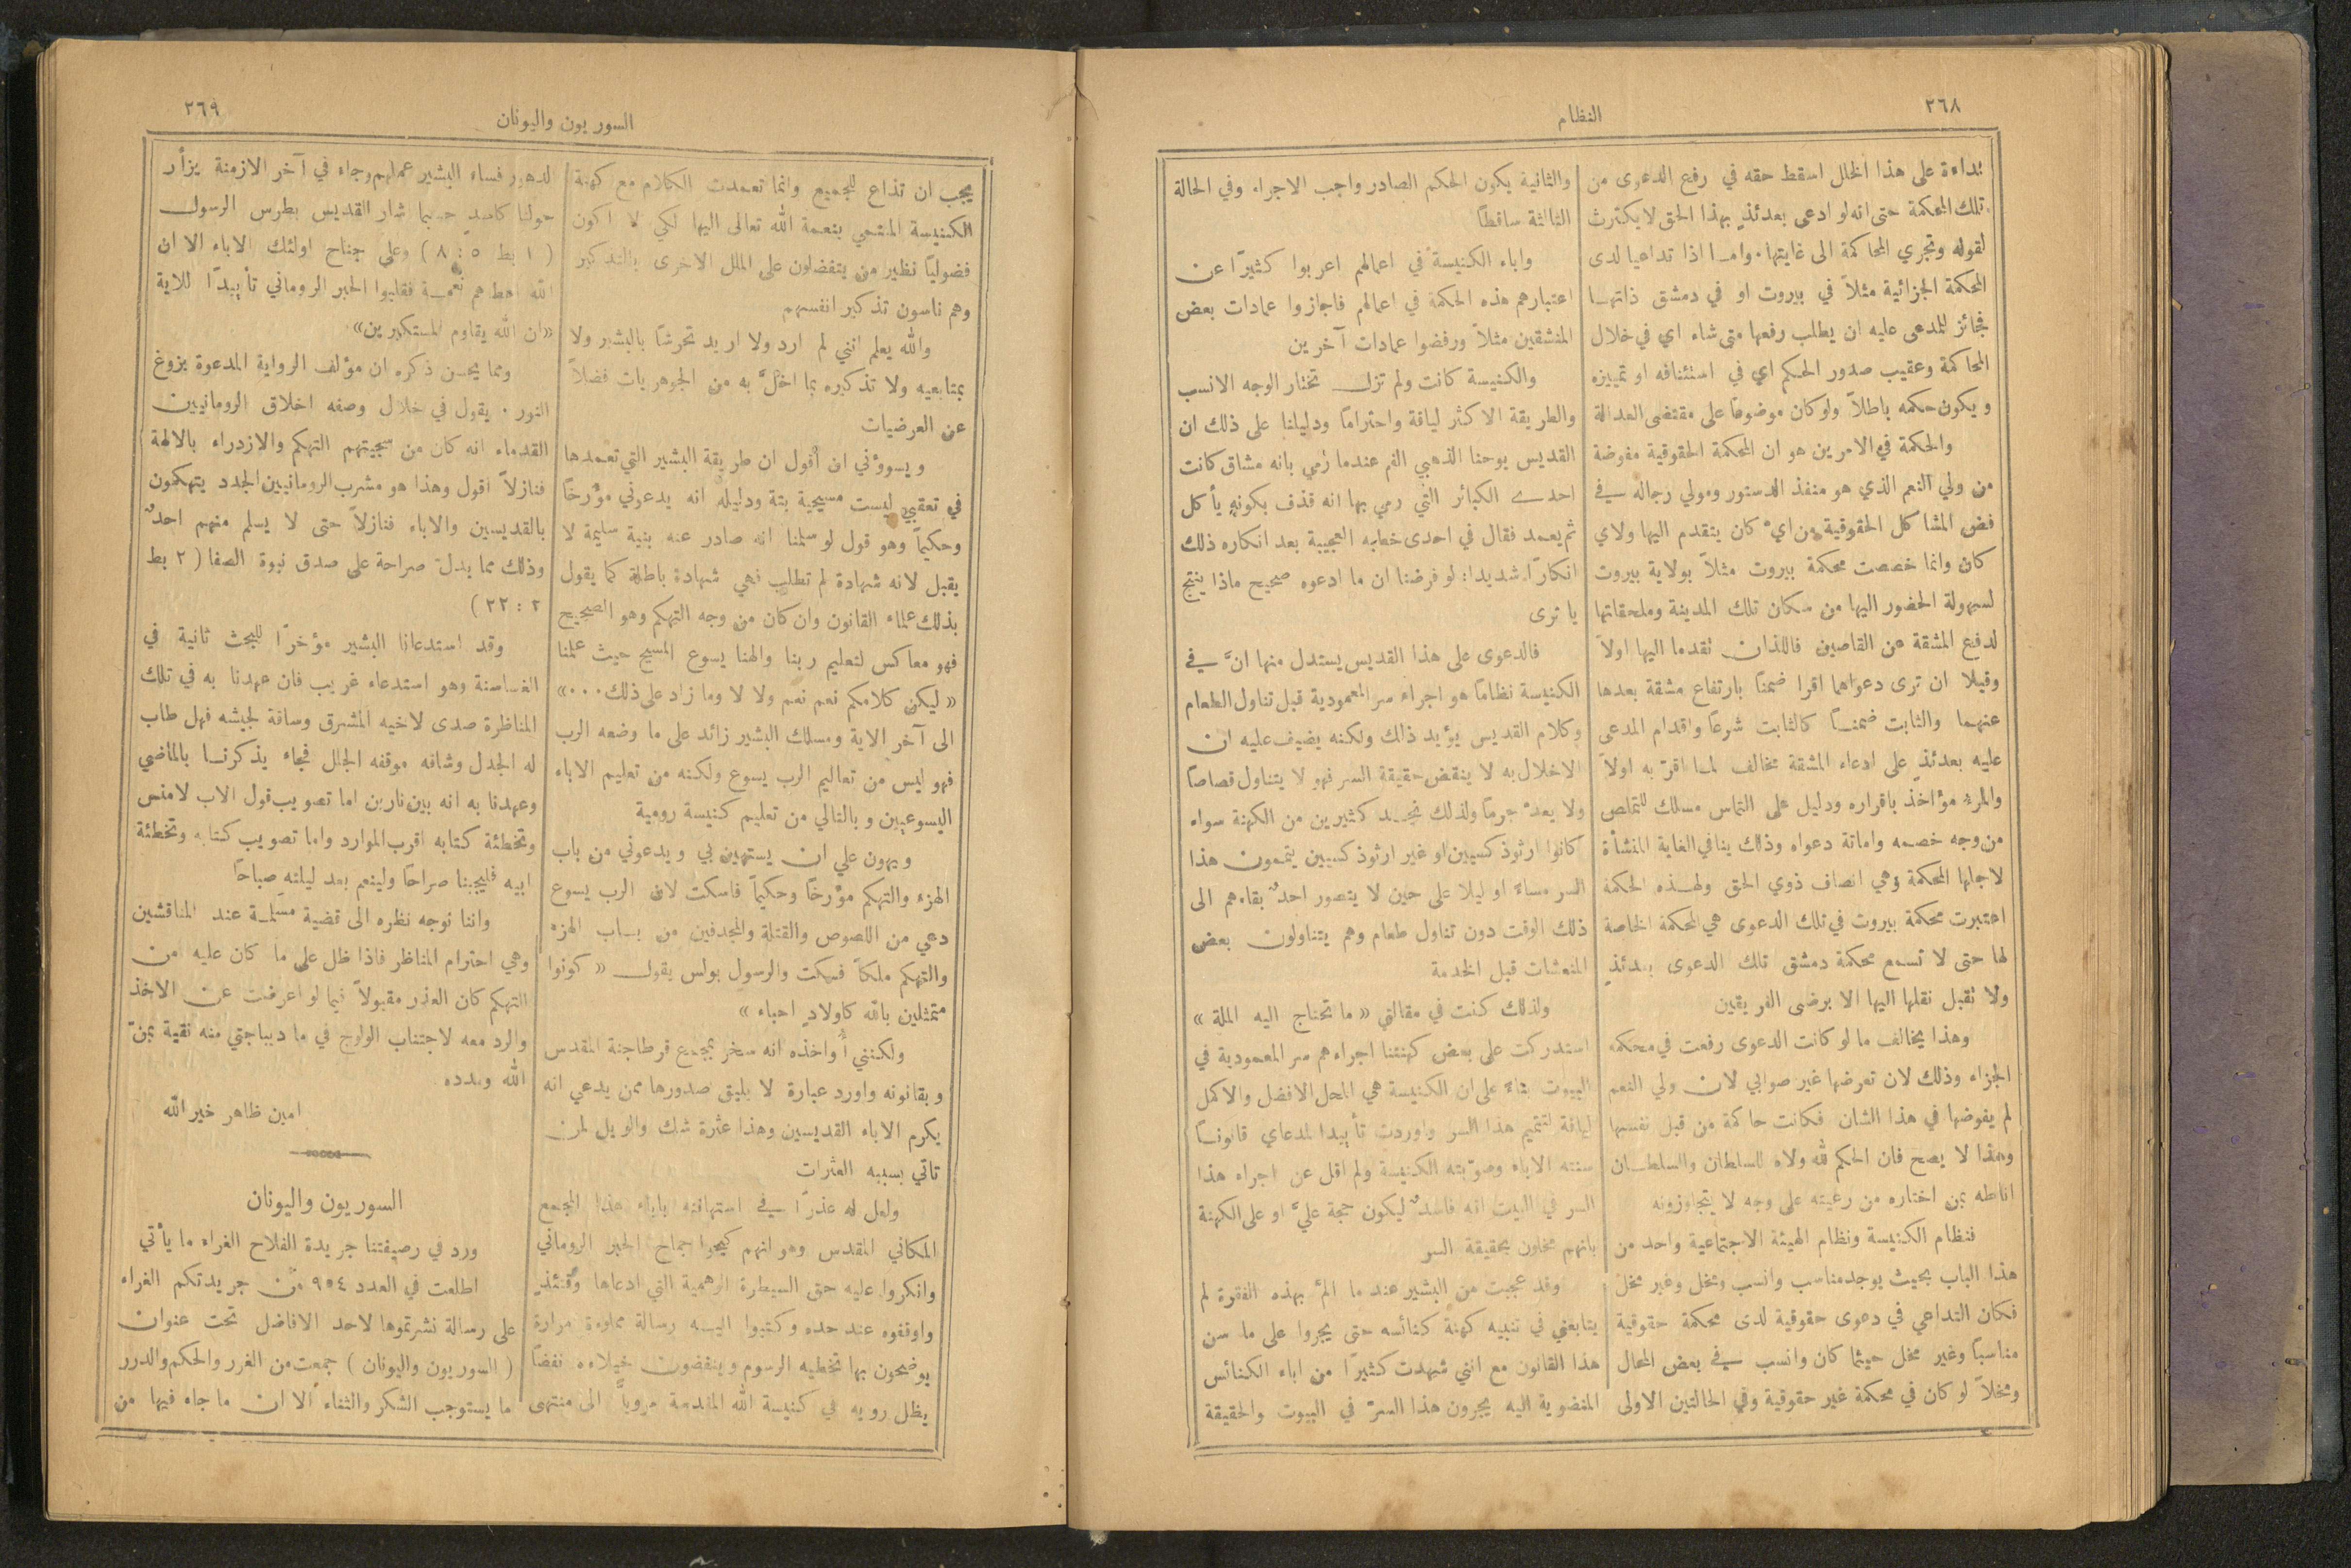 ٢٦٨
النظام
بداءة على هذا الخلل اسقط حقه في رفع الدعوى من
تلك المحكمة حتى انه لو ادعى بعدئذٍ بهذا الحق لا يكترث
لقوله وتجري المحاكمة الى غايتها. وامـا اذا تداعيا لدى
المحكمة الجزائية مثلاً في بيروت او في دمشق ذاتهـا
فجائز للمدعى عليه ان يطلب رفعها متى شاء اي في خلال
المحاكمة وعقيب صدور الحكم اي في استئنافه او تمييزه
ويكون حكمه باطلاً ولو كان موضوعًا على مقتضى العدالة
والحكمة في الامرين هو ان المحكمة الحقوقية مفوضة
من ولي النعم الذي هو منفذ الدستور ومولي رجاله في
فض المشاكل الحقوقية من ايّ كان يتقدم اليها ولاي
كان وانما خصصت محكمة بيروت مثلاً بولاية بيروت
لسهولة الحضور اليها من سكان تلك المدينة وملحقاتها
لدفع المشقة عن القاصين فاللذان تقدما اليها اولاً
وقيلا ان ترى دعواهما اقرا ضمنًا بارتفاع مشقة بعدها
عنهما والثابت ضمنًا كالثابت شرعًا واقدام المدعى
عليه بعدئذٍ على ادعاء المشقة مخالف لما اقرّ به اولاً
والمرء مؤاخذ باقراره ودليل على التماس مسلك للتملص
من وجه خصمه واماتة دعواه وذلك ينافي الغاية المنشأة
لاجلها المحكمة وهي انصاف ذوي الحق ولهـذه الحكمة
اعتبرت محكمة بيروت في تلك الدعوى هي المحكمة الخاصة
لها حتى لا تسمع محكمة دمشق تلك الدعوى بعدئذٍ
ولا تقبل نقلها اليها الا برضى الفريقين
وهذا يخالف ما لو كانت الدعوى رفعت في محكمة
الجزاء وذلك لان تعرضها غير صوابي لان ولي النعم
لم يفوضها في هذا الشان فكانت حاكمة من قبل نفسها
وهذا لا يصح فان الحكم لله ولاه للسلطان والسلطـان
اناطه بمن اختاره من رعيته على وجه لا يتجاوزونه
فنظام الكنيسة ونظام الهيئة الاجتماعية واحد من
هذا الباب بحيث يوجد مناسب وانسب ومخل وغير مخل
فكان التداعي في دعوى حقوقية لدى محكمة حقوقية
مناسبًا وغير مخل حيثما كان وانسب في بعض المحال
ومخلاً لو كان في محكمة غير حقوقية وفي الحالتين الاولى
والثانية يكون الحكم الصادر واجب الاجراء وفي الحالة
الثالثة ساقطًا
واباء الكنيسة في اعمالهم اعربوا كثيرًا عن
اعتبارهم هذه الحكمة في اعمالهم فاجازوا عمادات بعض
المنشقين مثلاً ورفضوا عمادات آخرين
والكنيسة كانت ولم تزل تختار الوجه الانسب
والطريقة الاكثر لياقة واحترامًا ودليلنا على ذلك ان
القديس يوحنا الذهبي الفم عندما رُمي بانه مشاق كانت
احدى الكبائر التي رمي بها انه قذف بكونه يأكل
ثم يعمد فقال في احدى خطابه العجيبة بعد انكاره ذلك
انكارًا شديدا: لو فرضنا ان ما ادعوه صحيح ماذا ينتج
يا ترى
فالدعوى على هذا القديس يستدل منها انَّ في
الكنيسة نظامًا هو اجراء سر المعمودية قبل تناول الطعام
وكلام القديس يؤيد ذلك ولكنه يضيف عليه ان
الاخلال به لا ينقض حقيقة السر فهو لا يتناول قصاصًا
ولا يعدّ جرمًا ولذلك نجـد كثيرين من الكهنة سواء
كانوا ارثوذكسيين او غير ارثوذكسيين يتممون هذا
السر مساءً او ليلا على حين لا يتصور احدٌ بقاءهم الى
ذلك الوقت دون تناول طعام وهم يتناولون بعض
المنعشات قبل الخدمة
ولذلك كنت في مقالتي « ما تحتاج اليه الملة »
استدركت على بعض كهنتنا اجراءهم سر المعمودية في
البيوت بناءً على ان الكنيسة هي المحل الافضل والاكمل
لياقة لتتميم هذا السر واوردت تأييدا لمدعاي قانونًا
سنته الاباء وصوّبته الكنيسة ولم اقل عن اجراء هذا
السر في البيت انه فاسدٌ ليكون حجة عليَّ او على الكهنة
بانهم مخلون بحقيقة السر
وقد عجبت من البشير عند ما المَّ بهذه الفقرة لم
يتابعني في تنبيه كهنة كنائسه حتى يجروا على ما سن
هذا القانون مع انني شهدت كثيرًا من اباء الكنائس
المنضوية اليه يجرون هذا السرّ في البيوت والحقيقة
السوريون واليونان
٢٦٩
يجب ان تذاع للجميع وانما تعمدت الكلام مع كهنة
الكنيسة المنتمي بنعمة الله تعالى اليها لكي لا اكون
فضوليًا نظير من يتفضلون على الملل الاخرى بالتذكير
وهم ناسون تذكير انفسهم
والله يعلم انني لم ارد ولا اريد تحرشًا بالبشير ولا
بمتابعيه ولا تذكيره بما اخلَّ به من الجوهريات فضلاً
عن العرضيات
ويسوؤني ان اقول ان طريقة البشير التي تعمدها
في تعقيبي ليست مسيحية بتة ودليله انه يدعوني مؤرخًا
وحكيمًا وهو قول لو سلمنا انه صادر عنه بنية سليمة لا
يقبل لانه شهادة لم تطلب فهي شهادة باطلة كما يقول
بذلك علماء القانون وان كان من وجه التهكم وهو الصحيح
فهو معاكس لتعليم ربنا والهنا يسوع المسيح حيث علمنا
« ليكن كلامكم نعم نعم ولا لا وما زاد على ذلك... »
الى آخر الاية ومسلك البشير زائد على ما وضعه الرب
فهو ليس من تعاليم الرب يسوع ولكنه من تعليم الاباء
اليسوعيين وبالتالي من تعليم كنيسة رومية
ويهون علي ان يستهين بي ويدعوني من باب
الهزء والتهكم مؤرخًا وحكيمًا فاسكت لان الرب يسوع
دعي من اللصوص والقتلة والمجدفين من بـاب الهزء
والتهكم ملكًا فسكت والرسول بولس يقول « كونوا
متمثلين بالله كاولادٍ احباء »
ولكنني أُواخذه انه سخر بمجمع قرطاجنة المقدس
وبقانونه واورد عبارة لا يليق صدورها ممن يدعي انه
يكرم الاباء القديسين وهذا عثرة شك والويل لمن
تاتي بسببه العثرات
ولعل له عذرًا في استهانته باباء هذا المجمع
المكاني المقدس وهو انهم كبحوا جماح الحبر الروماني
وانكروا عليه حق السيطرة الوهمية التي ادعاها وقتئذٍ
واوقفوه عند حده وكتبوا اليـه رسالة مملوءة مرارة
يوضحون بها تخطيه الرسوم وينفضون خيلاءه نفضًا
يظل رويه في كنيسة الله المقدسة مرويًّا الى منتهى
الدهور فساء البشير عملهم وجاء في آخر الازمنة يزأر
حولنا كاسدٍ حسبما اشار القديس بطرس الرسول
( ١ بط ٥ : ٨ ) وعلى جناح اولئك الاباء الا ان
الله اعطاهم نعمـة فغلبوا الحبر الروماني تأييدًا للاية
«ان الله يقاوم المستكبرين».
ومما يحسن ذكره ان مؤلف الرواية المدعوة بزوغ
النور . يقول في خلال وصفه اخلاق الرومانيين
القدماء انه كان من سجيتهم التهكم والازدراء بالالهة
فنازلاً اقول وهذا هو مشرب الرومانيين الجدد يتهكمون
بالقديسين والاباء فنازلاً حتى لا يسلم منهم احدٌ
وذلك مما يدل صراحة على صدق نبوة الصفا ( ٢ بط
٢ : ٢٢ )
وقد استدعانا البشير مؤخرًا للبحث ثانية في
الغساسنة وهو استدعاء غريب فان عهدنا به في تلك
المناظرة صدى لاخيه المشرق وساقة لجيشه فهل طاب
له الجدل وشاقه موقفه الجلل فجاء يذكرنـا بالماضي
وعهدنا به انه بين نارين اما تصويب قول الاب لامنس
وتخطئة كتابه اقرب الموارد واما تصويب كتابه وتخطئة
ابيه فليجبنا صراحًا ولينعم بعد ليلته صباحًا
واننا نوجه نظره الى قضية مسلمـة عند المناقشين
وهي احترام المناظر فاذا ظل على ما كان عليه من
التهكم كان العذر مقبولاً فيما لو اعرضت عن الاخذ
والرد معه لاجتناب الولوج في ما ديباجتي منه نقية بمنّ
الله ومدده
امين ظاهر خير الله
السوريون واليونان
ورد في رصيفتنا جريدة الفلاح الغراء ما يأتي
اطلعت في العدد ٩٥٤ من جريدتكم الغراء
على رسالة نشرتموها لاحد الافاضل تحت عنوان
( السوريون واليونان ) جمعت من الغرر والحكم والدرر
ما يستوجب الشكر والثناء الا ان ما جاء فيها من